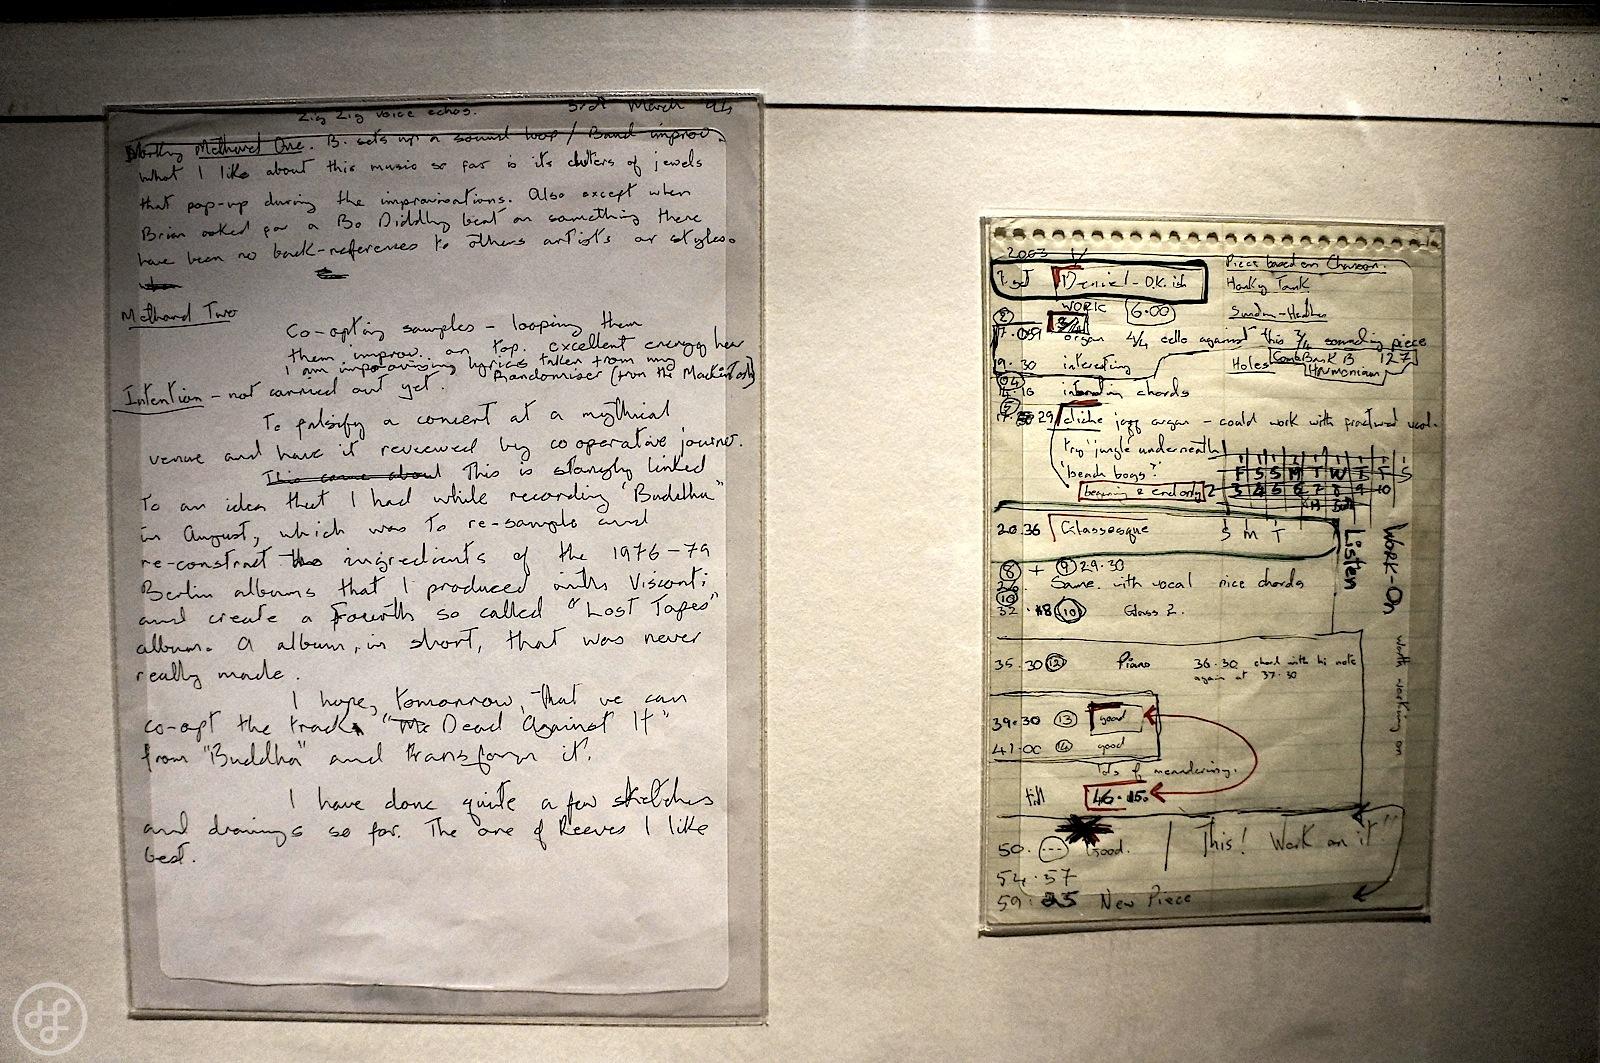 Zig Zig voice echos. 3rd March 94
Working Methard One. B. sets up a sound loop / Band improv.
What I like about this music so far is its clusters of jewels
that pop-up during the improvisations. Also except when
Brian asked for a Bo Diddley beat on something there
have been no back-references to others artists or styles.
Methard Two
Co-opting samples - looping them
them improv. on top. excellent energy here
I am improvising lyrics taken from my
Randomiser (from the Mackintosh)
Intention - not carried out yet.
To falsify a concert at a mythical
venue and have it reviewed by co operative journr.
This came about This is stangly linked
To an idea that I had while recording "Buddha"
in August, which was to re-sample and
re-construct the ingredients of the 1976-79
Berlin albums that I produced with Visconti
and create a Fourth so called "Lost Tapes"
album. A album, in short, that was never
really made.
I hope, tomorrow, that we can
co-opt the track "Dead Against It"
from "Buddha" and transform it.
I have done quite a few sketches
and drawings so far. The one of Reeves I like
best.
2003
Piece based on Chanson.
Honky Tonk
WORK 6.00
3/4
organ 4/4 cello against this 3/4 sounding piece
9.30 interesting
Holes
Harmonium
chords
29 cliche jazz organ - could work with fractured vocal.
Try 'jungle' underneath
'beach boys?'
beginning & end only
F S S M T W T F S
3 4 5 6 7 8 9 10
20.36 Glassesque
S M T
Listen
WORK-ON
worth working on
8 + 9 29.30
Same with vocal nice chords
10
32 10 Glass 2.
35.30 12 Piano 36.30 chord with hi note
again at 37.30
39.30 13 good
41.00 14 good
lots of meandering.
till 46.15.
50. Good. / This! Work on it"
54.57
59. New Piece